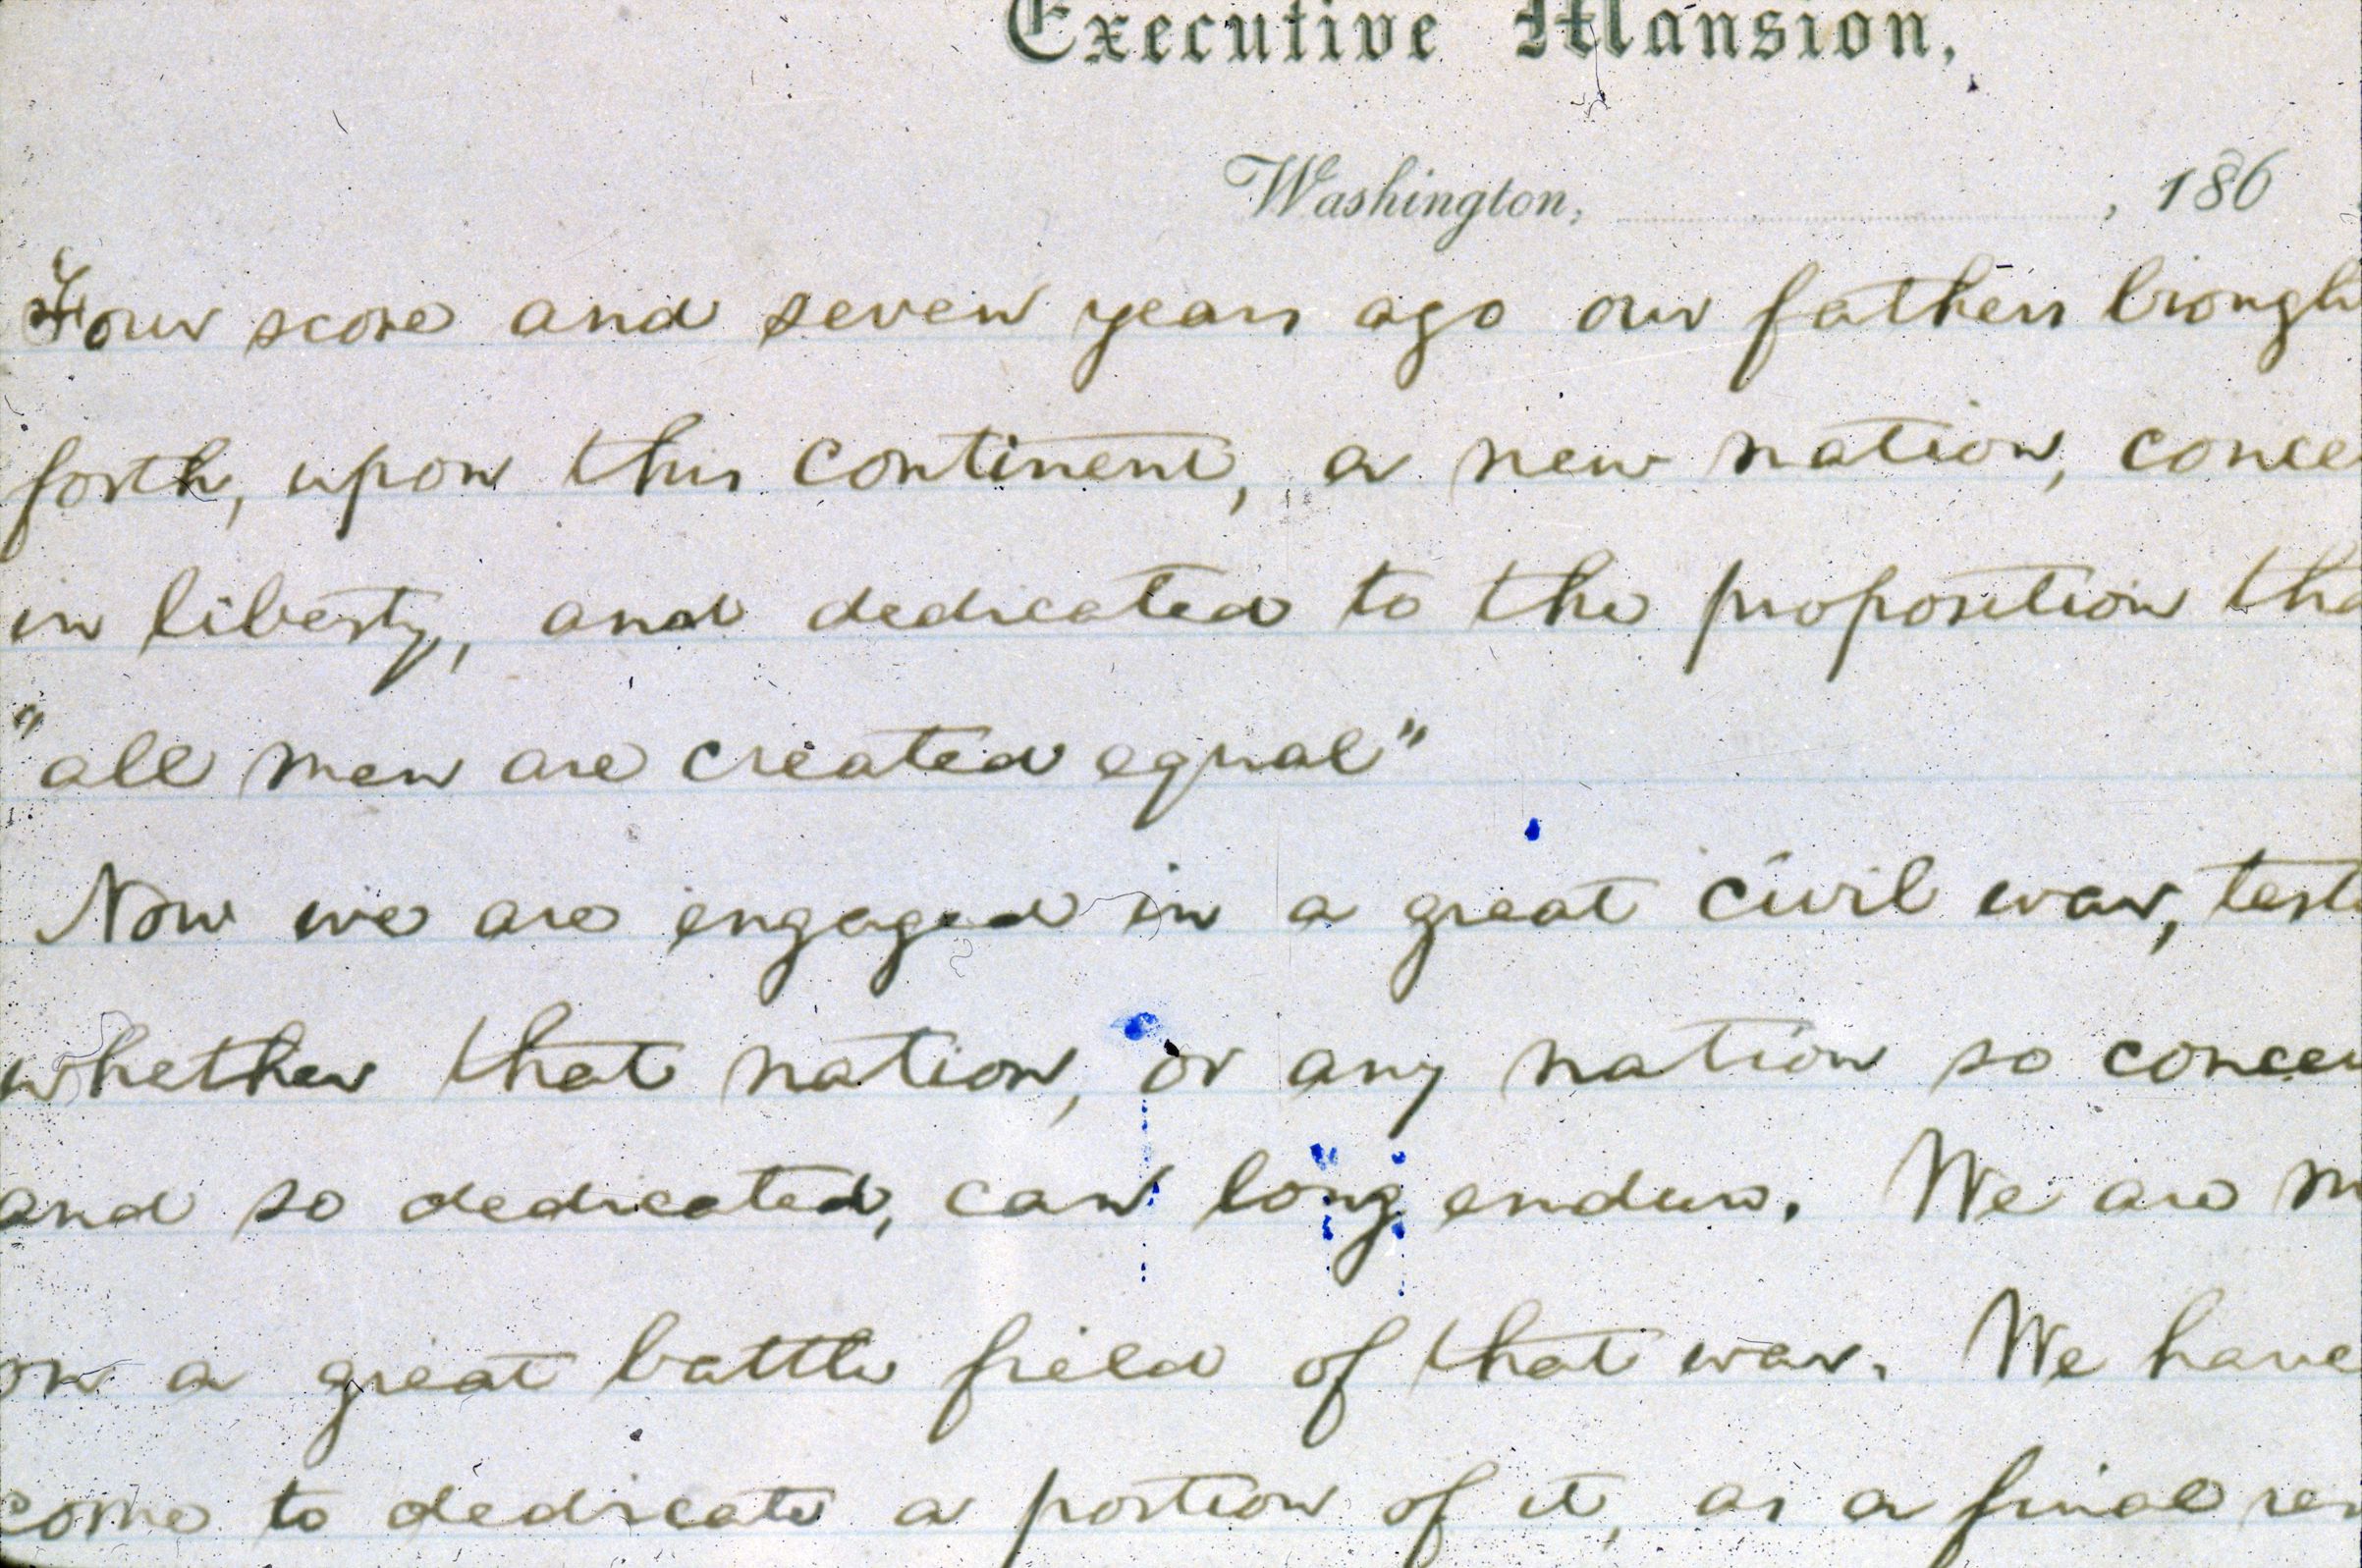 Executive Mansion,
Washington, , 186
Four score and seven years ago our fathers brough
forth, upon this continent, a new nation, concei
in liberty, and dedicated to the proposition tha
"all men are created equal"
Now we are engaged in a great civil war, testi
whether that nation, or any nation so conceiv
and so dedicated, can long endure. We are m
on a great battle field of that war. We have
come to dedicate a portion of it, as a final res